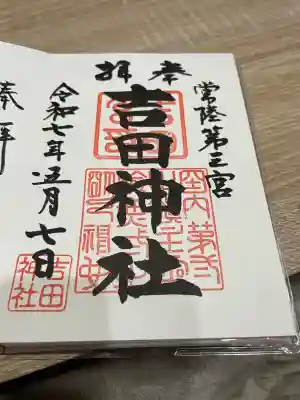 常陸第三宮
奉拝
吉田神社
令和七年五月七日
吉田神社
奉拝